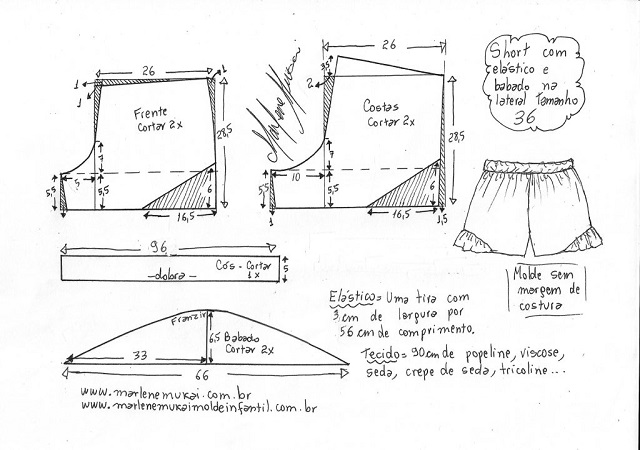 26
1
1
1
Frente
Cortar 2x
28,5
7
5
5,5
5,5
6
16,5
Marlene Mukai
26
3,5
2
Costas
Cortar 2x
28,5
7
10
5,5
5,5
6
1
16,5
1,5
Short com
elástico e
babado na
lateral tamanho
36
96
Cós - Cortar
1x
-dobra-
5
Molde sem
margem de
costura
Franzir
6,5
Babado
Cortar 2x
33
66
Elástico= Uma tira com
3 cm de largura por
56 cm de comprimento.
Tecido= 90cm de popeline, viscose,
seda, crepe de seda, tricoline...
www.marlenemukai.com.br
www.marlenemukaimoldeinfantil.com.br